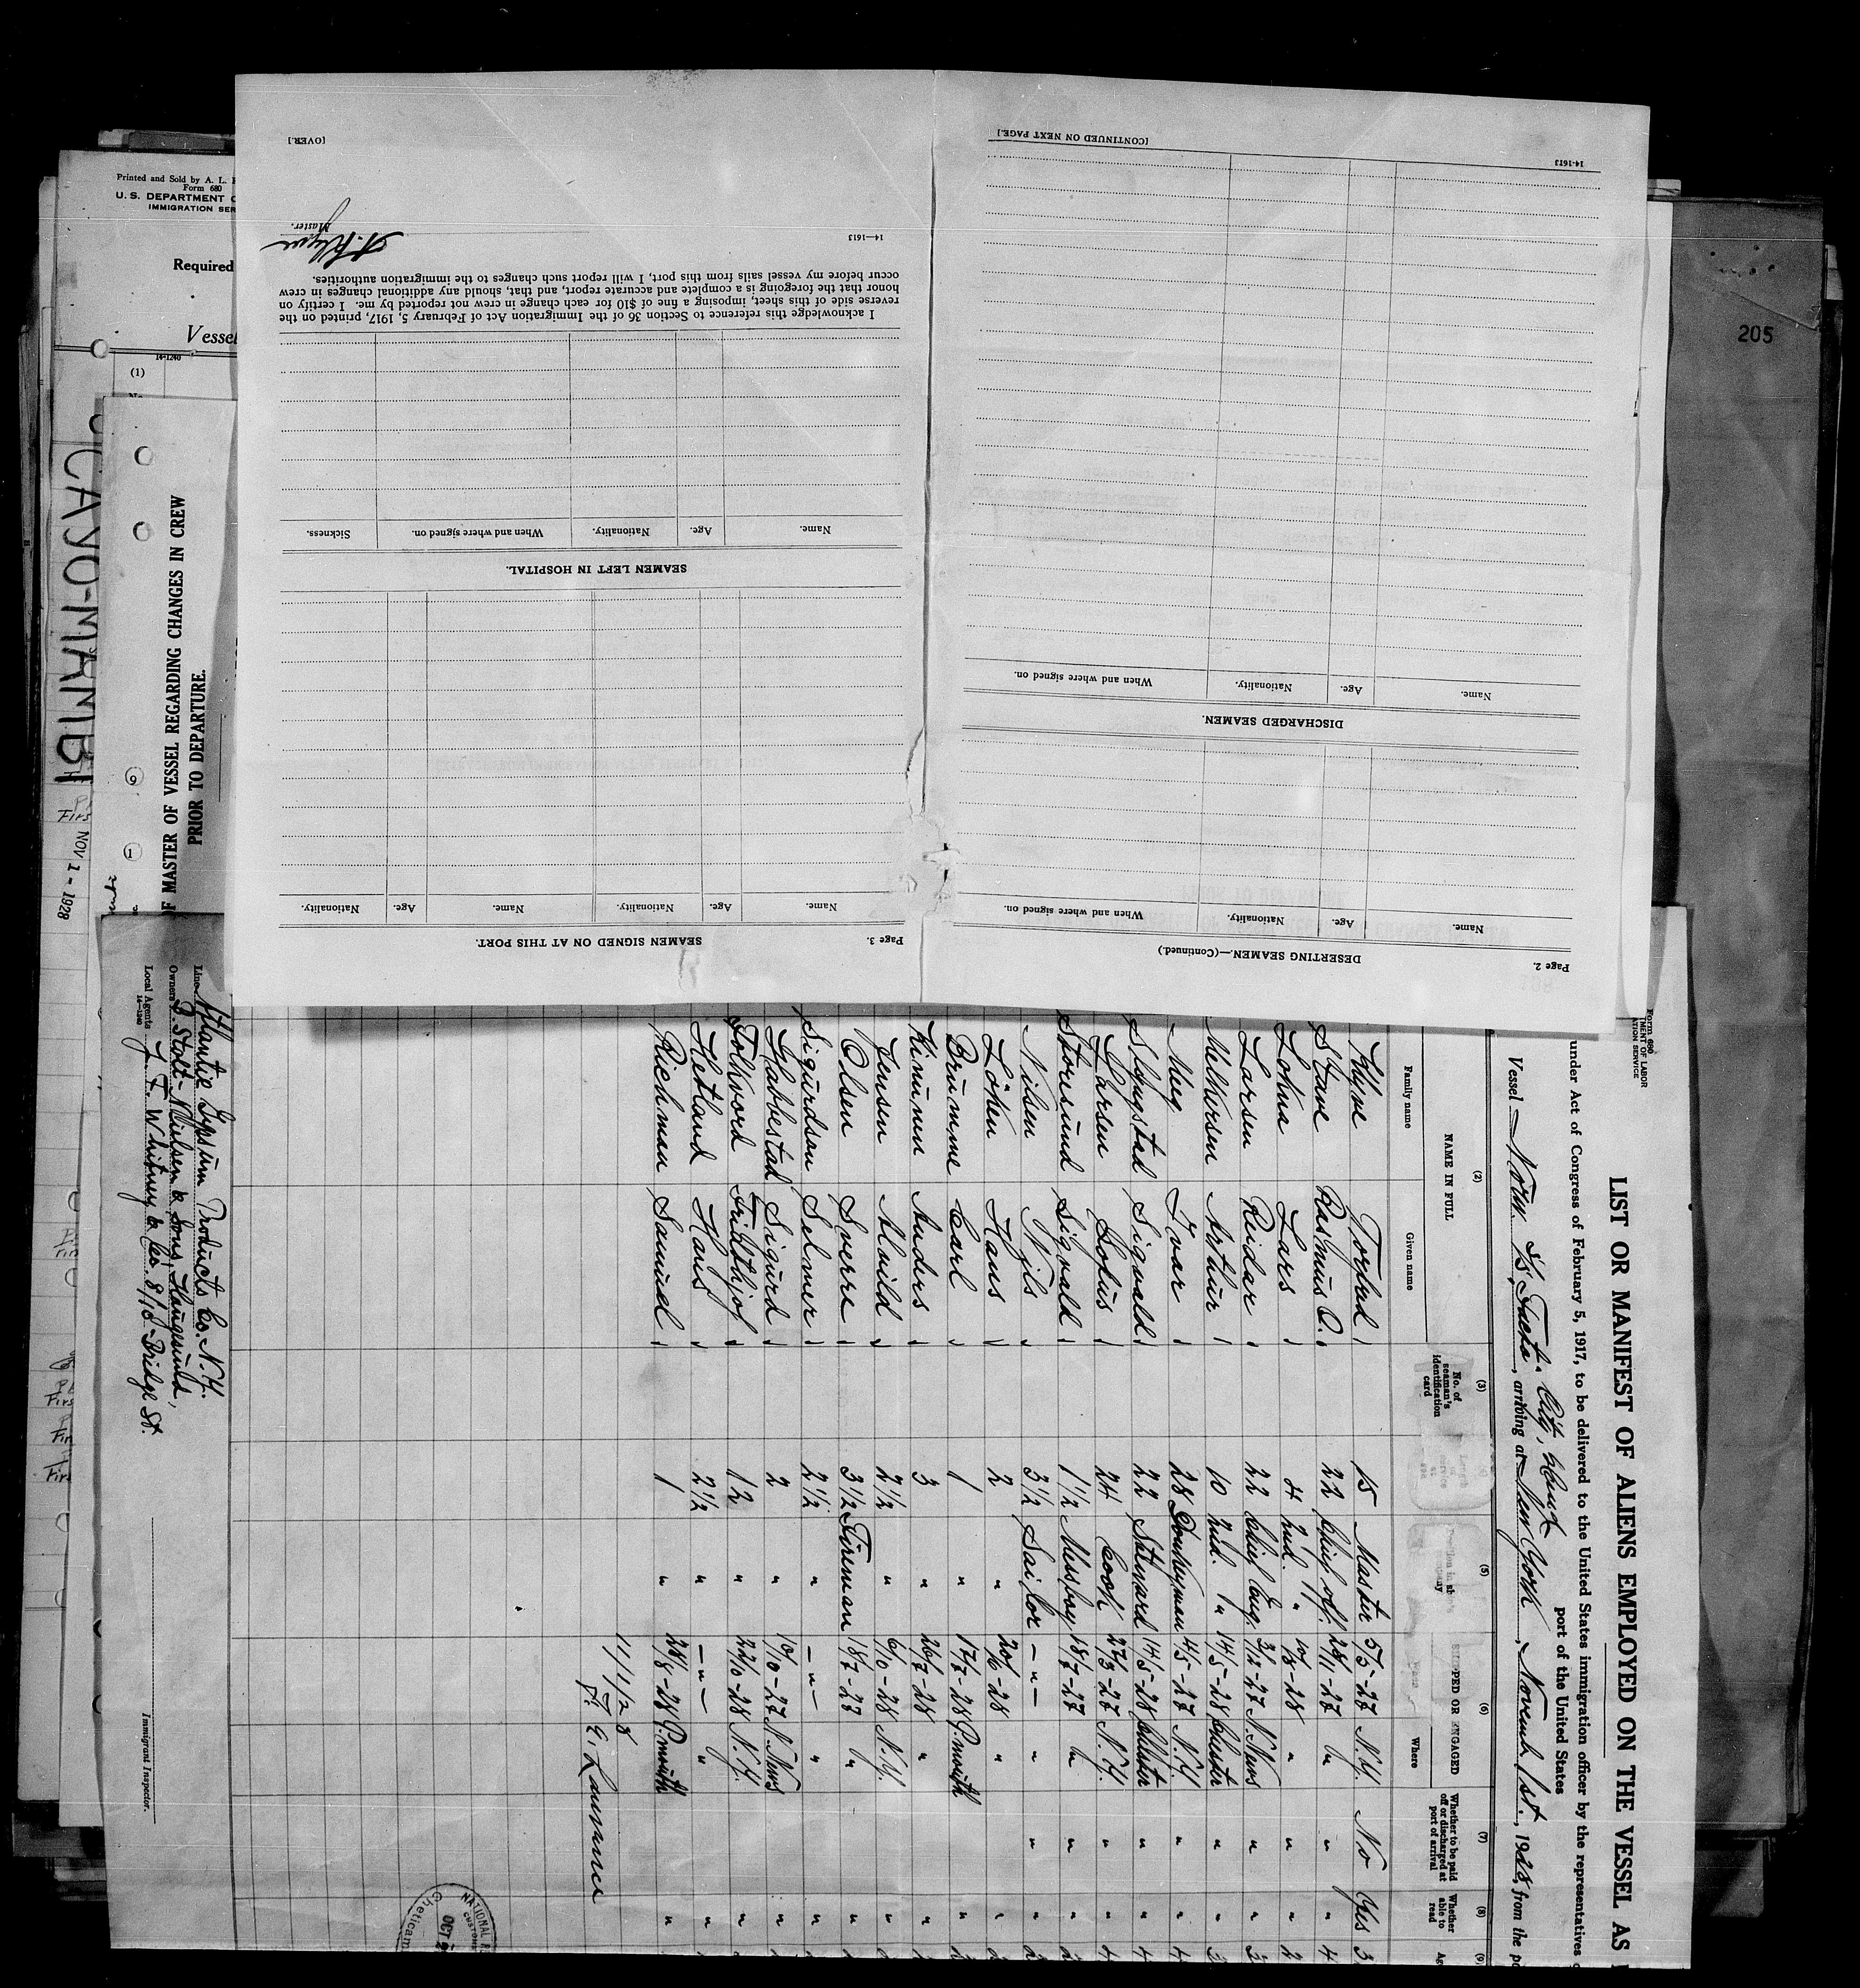 205
Printed and Sold by A. L.
Form 680
U. S. DEPARTMENT
IMMIGRATION SER
Required
Vessel
14-1240
(1)
CAYO-MAMBI
NOV 1 - 1928
9
1
OF MASTER OF VESSEL REGARDING CHANGES IN CREW
PRIOR TO DEPARTURE.
Page 2.
DESERTING SEAMEN.—(Continued.)
Name. Age. Nationality. When and where signed on.
DISCHARGED SEAMEN.
Name. Age. Nationality. When and where signed on.
14-1613
[CONTINUED ON NEXT PAGE.]
Page 3.
SEAMEN SIGNED ON AT THIS PORT.
Name. Age. Nationality. Name. Age. Nationality.
SEAMEN LEFT IN HOSPITAL.
Name. Age. Nationality. When and where signed on. Sickness.
I acknowledge this reference to Section 36 of the Immigration Act of February 5, 1917, printed on the
reverse side of this sheet, imposing a fine of $10 for each change in crew not reported by me. I certify on
honor that the foregoing is a complete and accurate report, and that, should any additional changes in crew
occur before my vessel sails from this port, I will report such changes to the immigration authorities.
14—1613
Master.
[OVER.]
Form 680
TMENT OF LABOR
ATION SERVICE
LIST OR MANIFEST OF ALIENS EMPLOYED ON THE VESSEL AS
under Act of Congress of February 5, 1917, to be delivered to the United States immigration officer by the representatives
port of the United States
Vessel Norw. S/S, arriving at New York, November 1st., 1928, from the po
(2) (3) (5) (6) (7) (8) (9)
NAME IN FULL
Family name Given name
No. of seaman's identification card
SHIPPED OR ENGAGED
Where
Whether to be paid off or discharged at port of arrival
Whether able to read
Ag
Klyve Torleul 15 Master 5/5-27 N.Y. No Yes 3
Stave Rasmus O. 22 Chief off. 28/11-27 " " " 4
Lohna Lars 4 2nd. " 10/3-28 " " " 2
Larsen Reidar 22 Chief Eng. 3/12-27 N. News " " 3
Melkersen Arthur 10 2nd. " 14/5-28 Chester " " 3
Meeg Ivar 28 Donkeyman 4/5-27 N.Y. " " 4
Slyngstad Sigvald 22 Steward 14/5-28 Chester " " 4
Larsen Sofus 24 Cook 27/3-27 N.Y. " " 4
Storesund Sigvald 1½ Messboy 18/7-27 " " " 2
Nilsen Nils 3½ Sailor -"- " " " 2
Löken Hans 2 " 20/6-28 " " 2
Brumme Carl 1 " 17/7-28 P.mouth " 2
Kinunn Anders 3 " 26/7-28 " " 2
Jensen Alvild 2½ " 6/10-28 N.Y. "
Olsen Sverre 3½ Fireman 18/7-27 " " 2
Sigurdsen Selmer 2½ " -"- " "
Gabbestad Sigurd 2 " 10/10-27 N. News "
Folkvord Fridthjof 12 " 22/10-28 N.Y. "
Hetland Hans 2½ " -"- " "
Richman Samuel 1 " 28/8-28 P.mouth "
11/1/28
Line Atlantic Gypsum Products Co. N.Y.
Owners B. Stolt-Nielsen & Sons, Haugesund,
Local Agents J. F. Whitney & Co. 8/10 Bridge St.
14-1240
Immigrant Inspector.
NATIONAL R
CUSTOMS
OCT 2
Cheticam